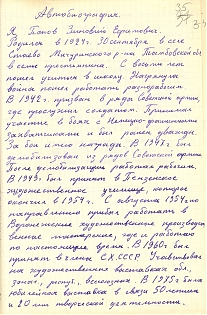 Автобиография.
Я Панов Зиновий
Родился в 1924г. 30 сентября в селе
Мичуринского р-на Тамбовской обл.
в семье крестьянина. С восьми лет
пошел учиться в школу. Нагрянула
война пошел работать
В 1942г. призван в ряды Советской армии,
где прослужил солдатом. Принимал
участие в боях с Немецко-фашистскими
захватчиками и был ранен дважды.
За бои имею награды. В 1947г. был
демобилизован из рядов Советской армии
После демобилизации работал рабочим.
В 1949г. был принят в Пензенское
художественное училище, которое
окончил в 1954г. С августа 1954г. по
направлению прибыл работать в
Воронежские художественно производст-
венные мастерские, где и работаю
по настоящее время. В 1960г. был
принят в члены СХ СССР. Участвовал
на художественных выставках обл,
зональ, респуб, всесоюзн. В 1975г. была
юбилейная выставка в связи 50-летием
и 20 лет творческой деятельности.